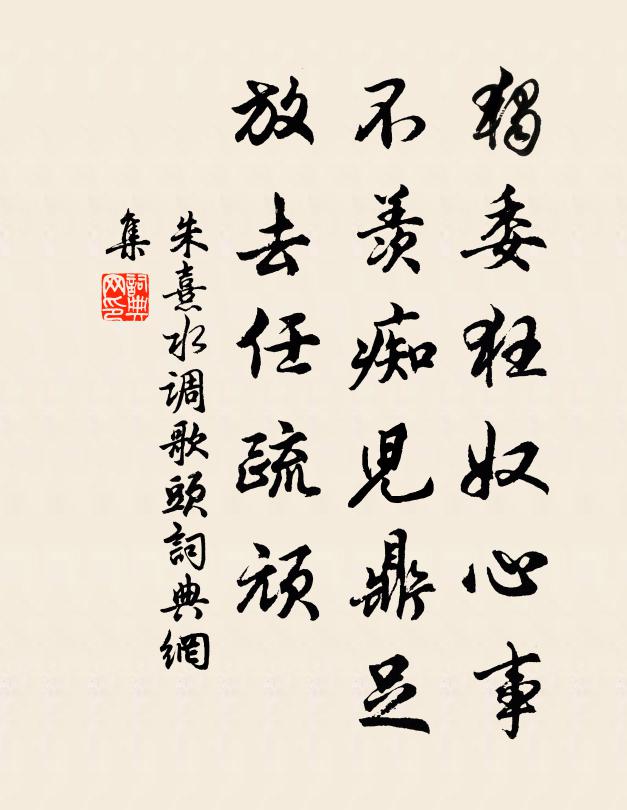 獨委狂奴心事
不羨痴兒鼎足
放去任疏頑
朱熹水调歌頭詞典網
集
詞典
网印